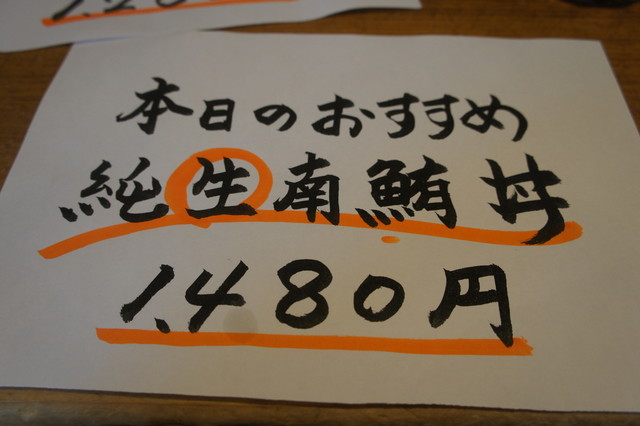 本日のおすすめ
純生南鮪丼
1,480円